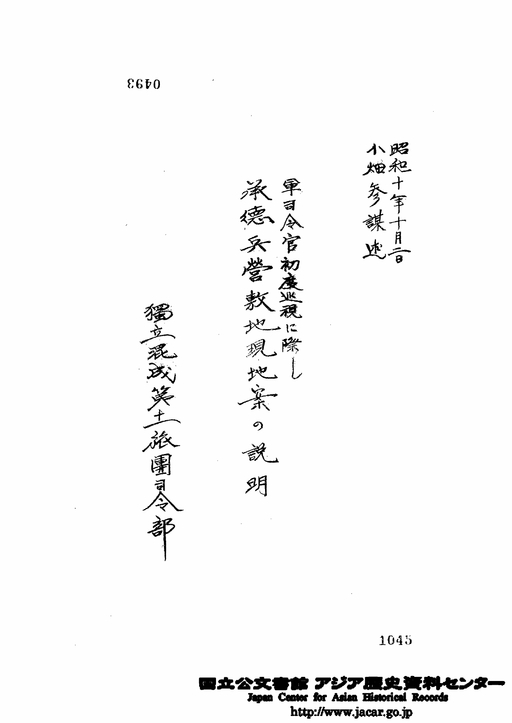 0493
昭和十年十月二日
小畑参謀述
軍司令官初度巡視に際し
承徳兵營敷地現地案の説明
獨立混成第十一旅團司令部
1045
国立公文書館 アジア歴史資料センター
Japan Center for Asian Historical Records
http://www.jacar.go.jp